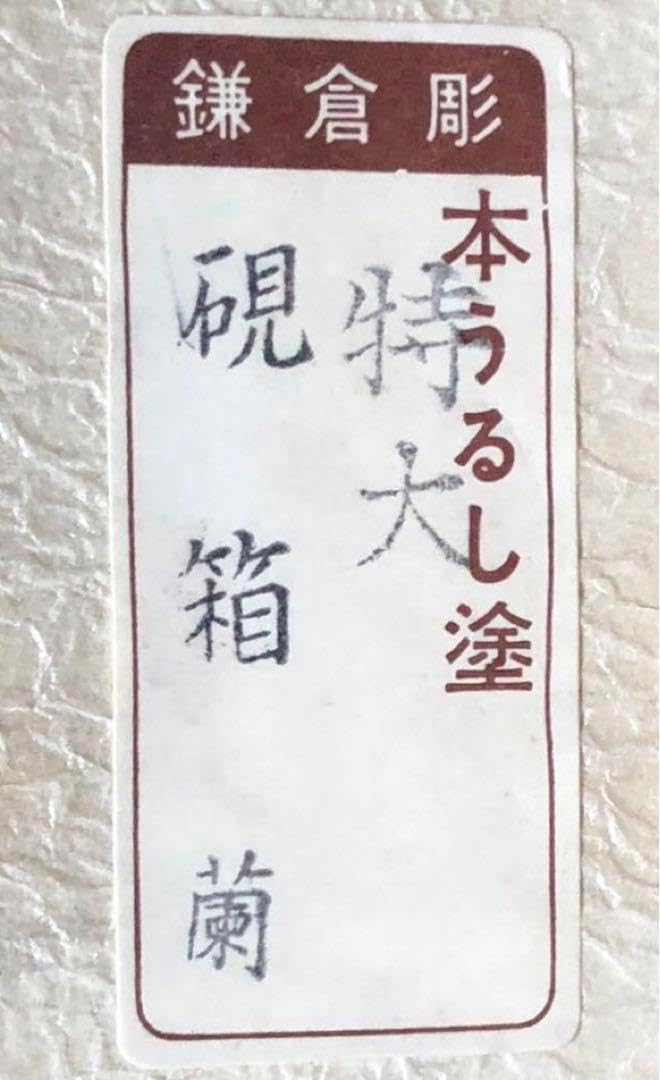 鎌倉彫
本うるし塗
特大
硯箱 蘭